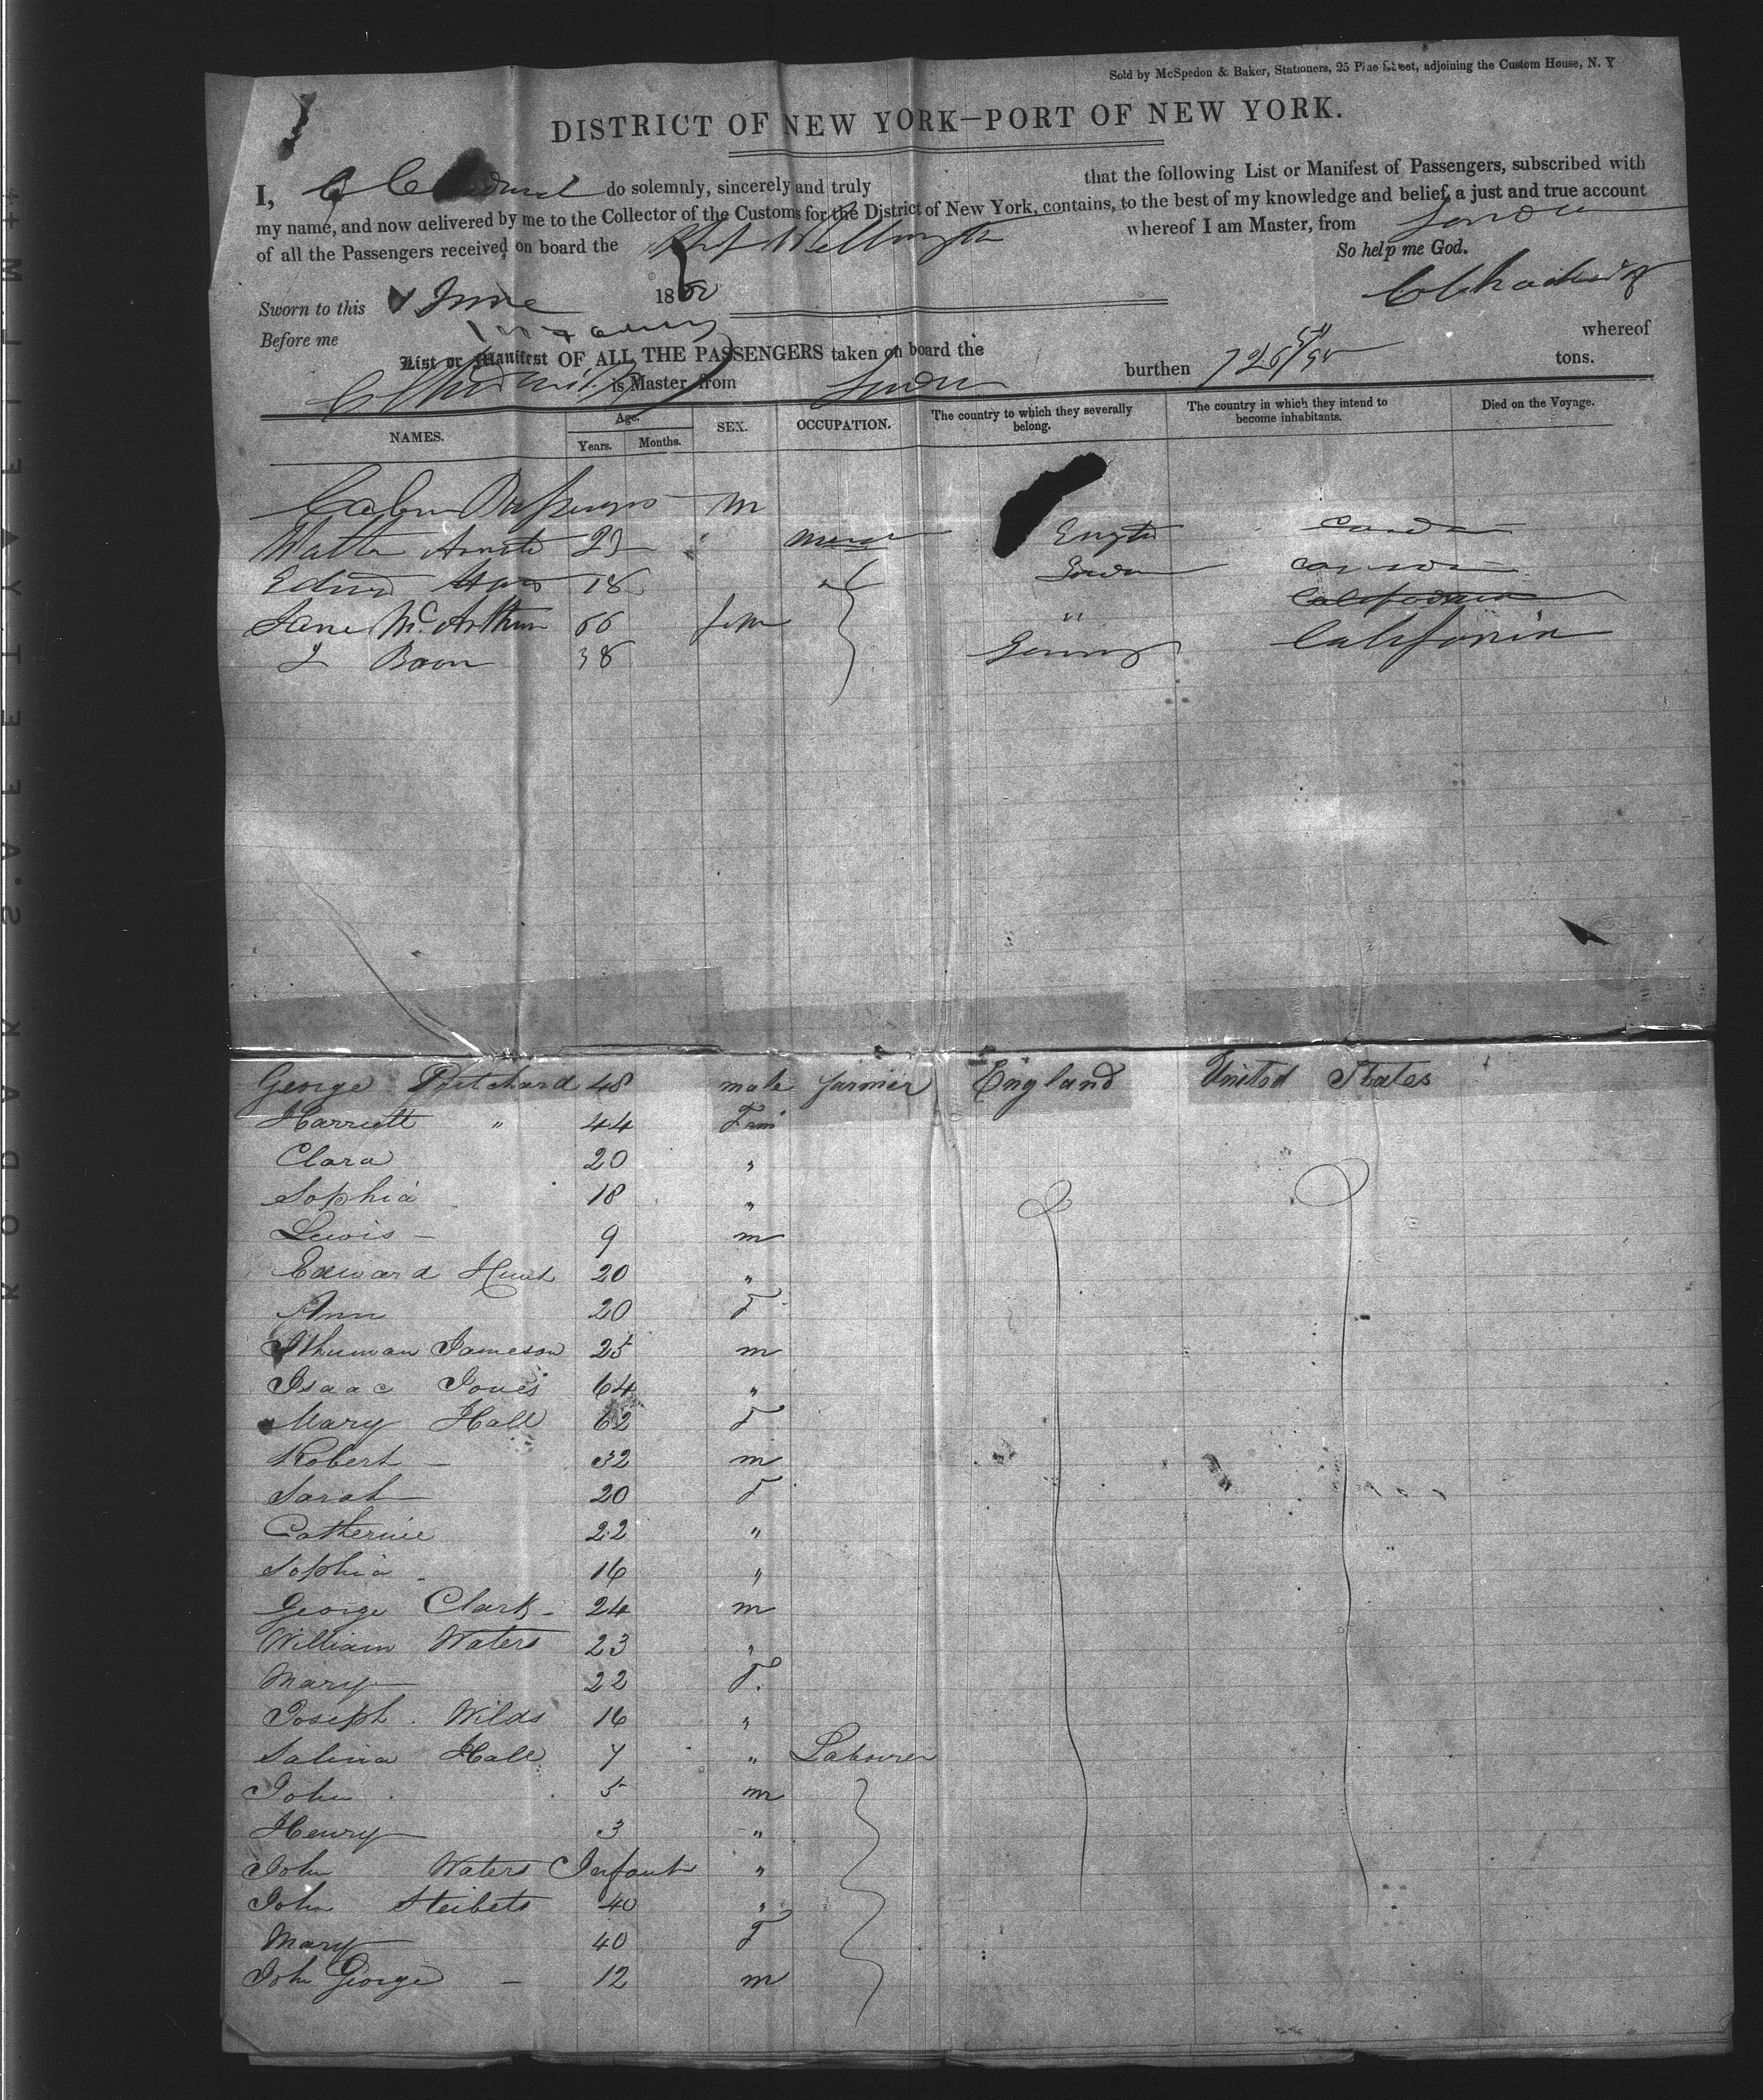 Sold by McSpedon & Baker, Stationers, 25 Pine Street, adjoining the Custom House, N. Y
DISTRICT OF NEW YORK—PORT OF NEW YORK.
I, do solemnly, sincerely and truly that the following List or Manifest of Passengers, subscribed with
my name, and now delivered by me to the Collector of the Customs for the District of New York, contains, to the best of my knowledge and belief, a just and true account
of all the Passengers received on board the Ship Wellington whereof I am Master, from London
So help me God.
Sworn to this June 1850
Before me
List or Manifest OF ALL THE PASSENGERS taken on board the whereof
is Master, from London burthen 726 /95 tons.
NAMES. Age. Years. Months. SEX. OCCUPATION. The country to which they severally belong. The country in which they intend to become inhabitants. Died on the Voyage.
Cabin Passengers m
Walter 23
Edwd 18
Jane McArthur 66 fem " California
Boon 38 Germy California
George Pritchard 48 male farmer England United States
Harriett " 44 Fem
Clara 20 "
Sophia 18 "
Lewis - 9 m
Edward Hunt 20 "
Ann 20 F
Jameson 25 m
Isaac Jones 64 "
Mary Hall 62 F
Robert - 32 m
Sarah 20 F
Catherine 22 "
Sophia - 16 "
George Clark - 24 m
William Waters 23 "
Mary 22 F.
Joseph . Wilds 16 "
Salina Hall 7 " Labourer
John . 5 m
Henry 3 "
John Waters Infant "
John Steibets 40 "
Mary 40 F
John George - 12 m
KODAK·SAFETY·FILM